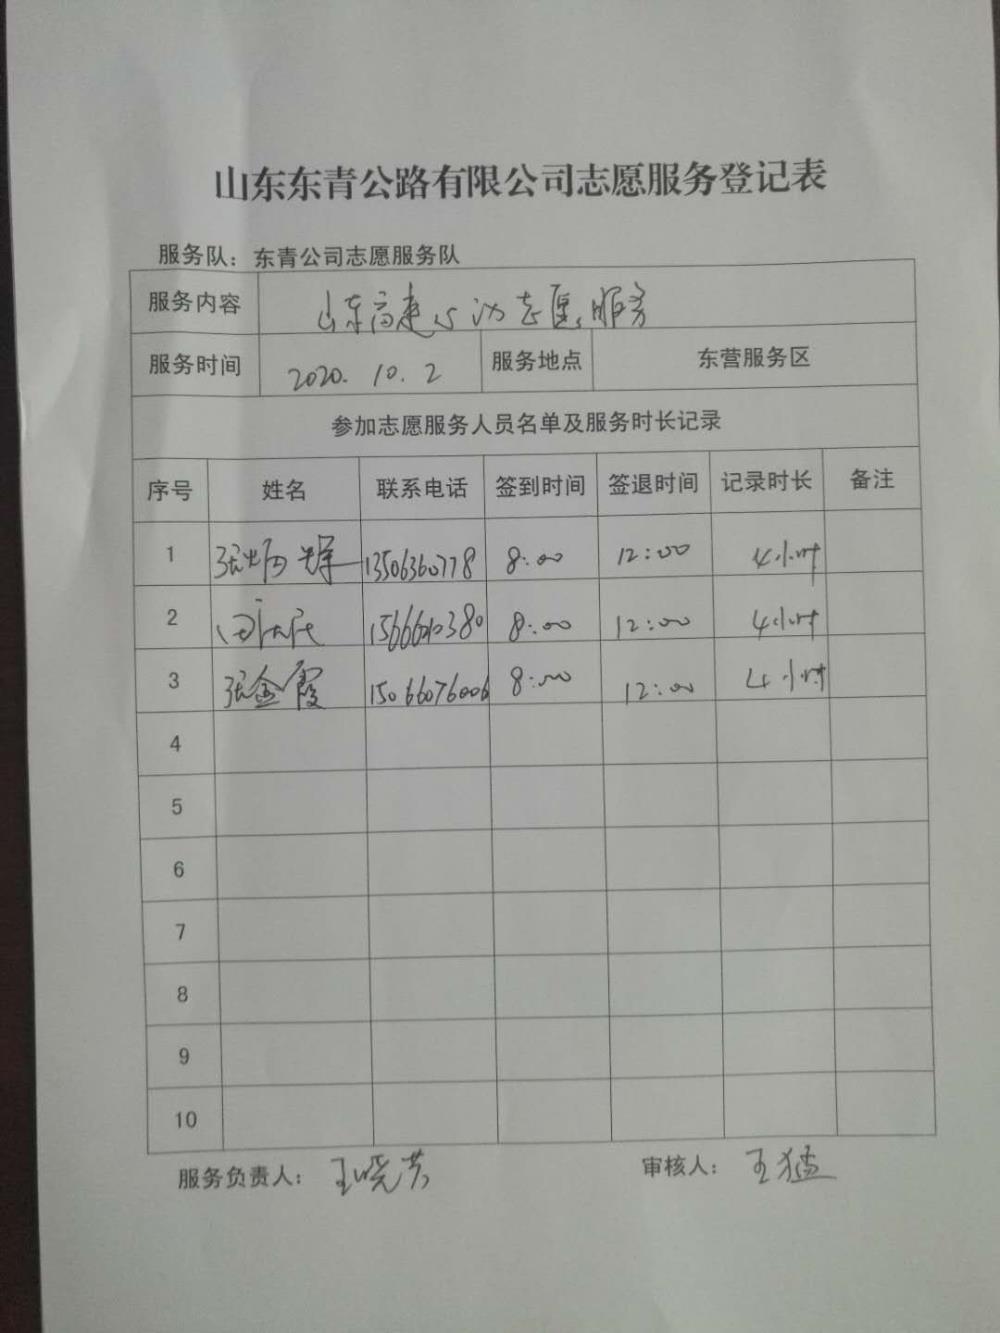 山东东青公路有限公司志愿服务登记表
服务队：东青公司志愿服务队
服务内容 山东高速 志愿服务
服务时间 2020.10.2 服务地点 东营服务区
参加志愿服务人员名单及服务时长记录
序号 姓名 联系电话 签到时间 签退时间 记录时长 备注
1 张炳辉 13506360778 8:00 12:00 4小时
2 8:00 12:00 4小时
3 张金霞 15066076006 8:00 12:00 4小时
4
5
6
7
8
9
10
服务负责人：王晓芸 审核人：王猛